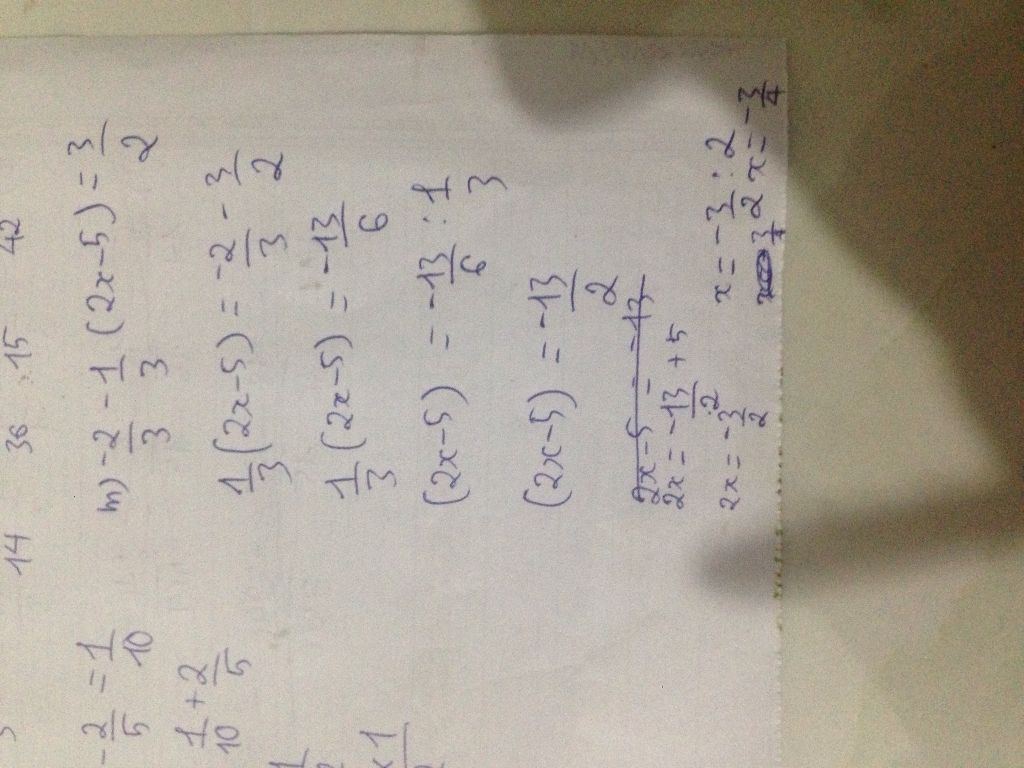 14 36 15 42
-2/5 = 1/10
1/10 + 2/5
m) -2/3 - 1/3 (2x-5) = 3/2
1/3 (2x-5) = -2/3 - 3/2
1/3 (2x-5) = -13/6
(2x-5) = -13/6 : 1/3
(2x-5) = -13/2
2x-5 = -13
2x = -13/2 + 5
2x = -3/2
x = -3/2 : 2
x = -3/4